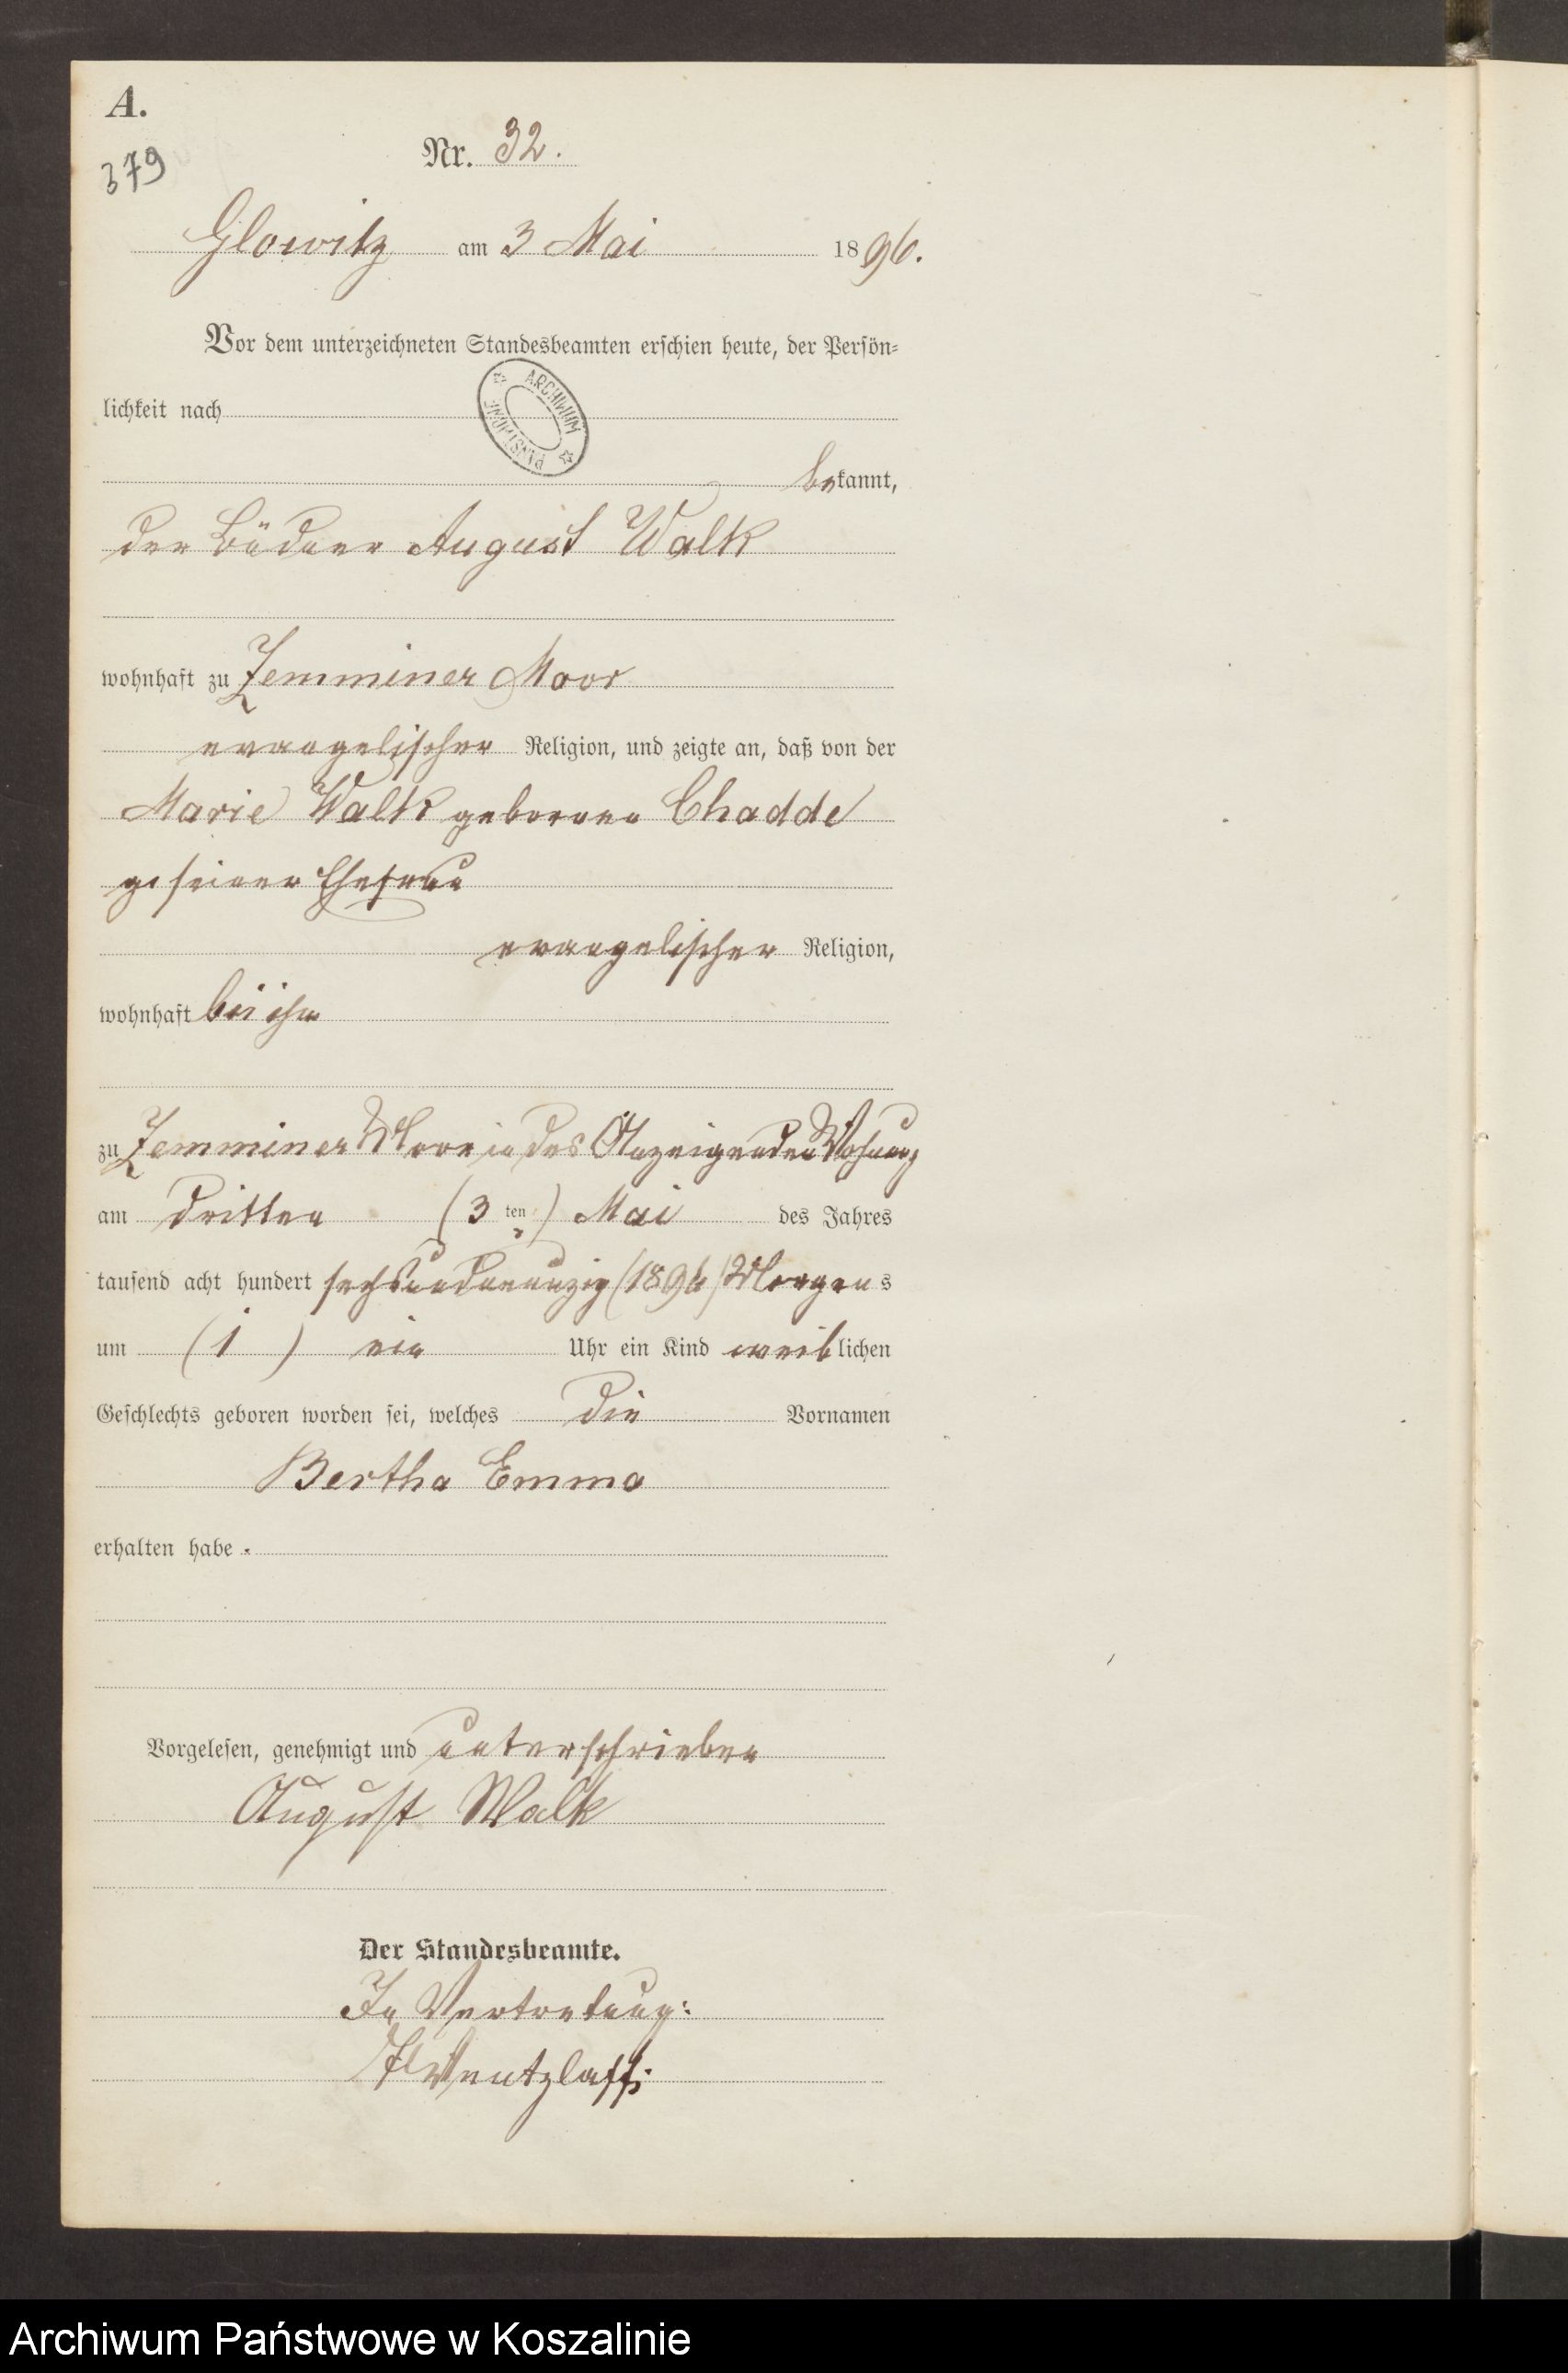 A.
379
Nr. 32.
Glowitz am 3 Mai 1896.
Vor dem unterzeichneten Standesbeamten erschien heute, der Persön-
lichkeit nach
ARCHIWUM PAŃSTWOWE
bekannt,
der Büdner August Walk
wohnhaft zu Zemminer Moor
evangelischer Religion, und zeigte an, daß von der
Marie Walk geborenen Chadde
seiner Ehefrau
evangelischer Religion,
wohnhaft bei ihm
zu Zemminer Moor in des Anzeigenden Wohnung
am dritten (3 ten) Mai des Jahres
tausend acht hundert sechsundneunzig (1896) Morgens
um (1) ein Uhr ein Kind weiblichen
Geschlechts geboren worden sei, welches die Vornamen
Bertha Emma
erhalten habe.
Vorgelesen, genehmigt und unterschrieben
August Walk
Der Standesbeamte.
In Vertretung:
Wentzlaff.
Archiwum Państwowe w Koszalinie